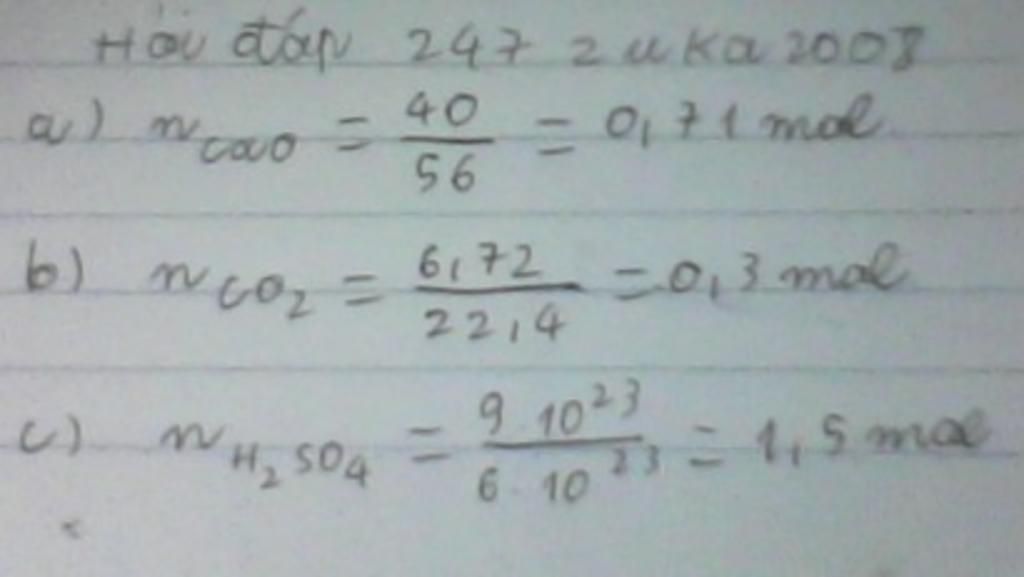 Hỏi đáp 247 zuka2008
a) n CaO = 40/56 = 0,71 mol
b) n CO2 = 6,72/22,4 = 0,3 mol
c) n H2SO4 = 9.10^23/6.10^23 = 1,5 mol